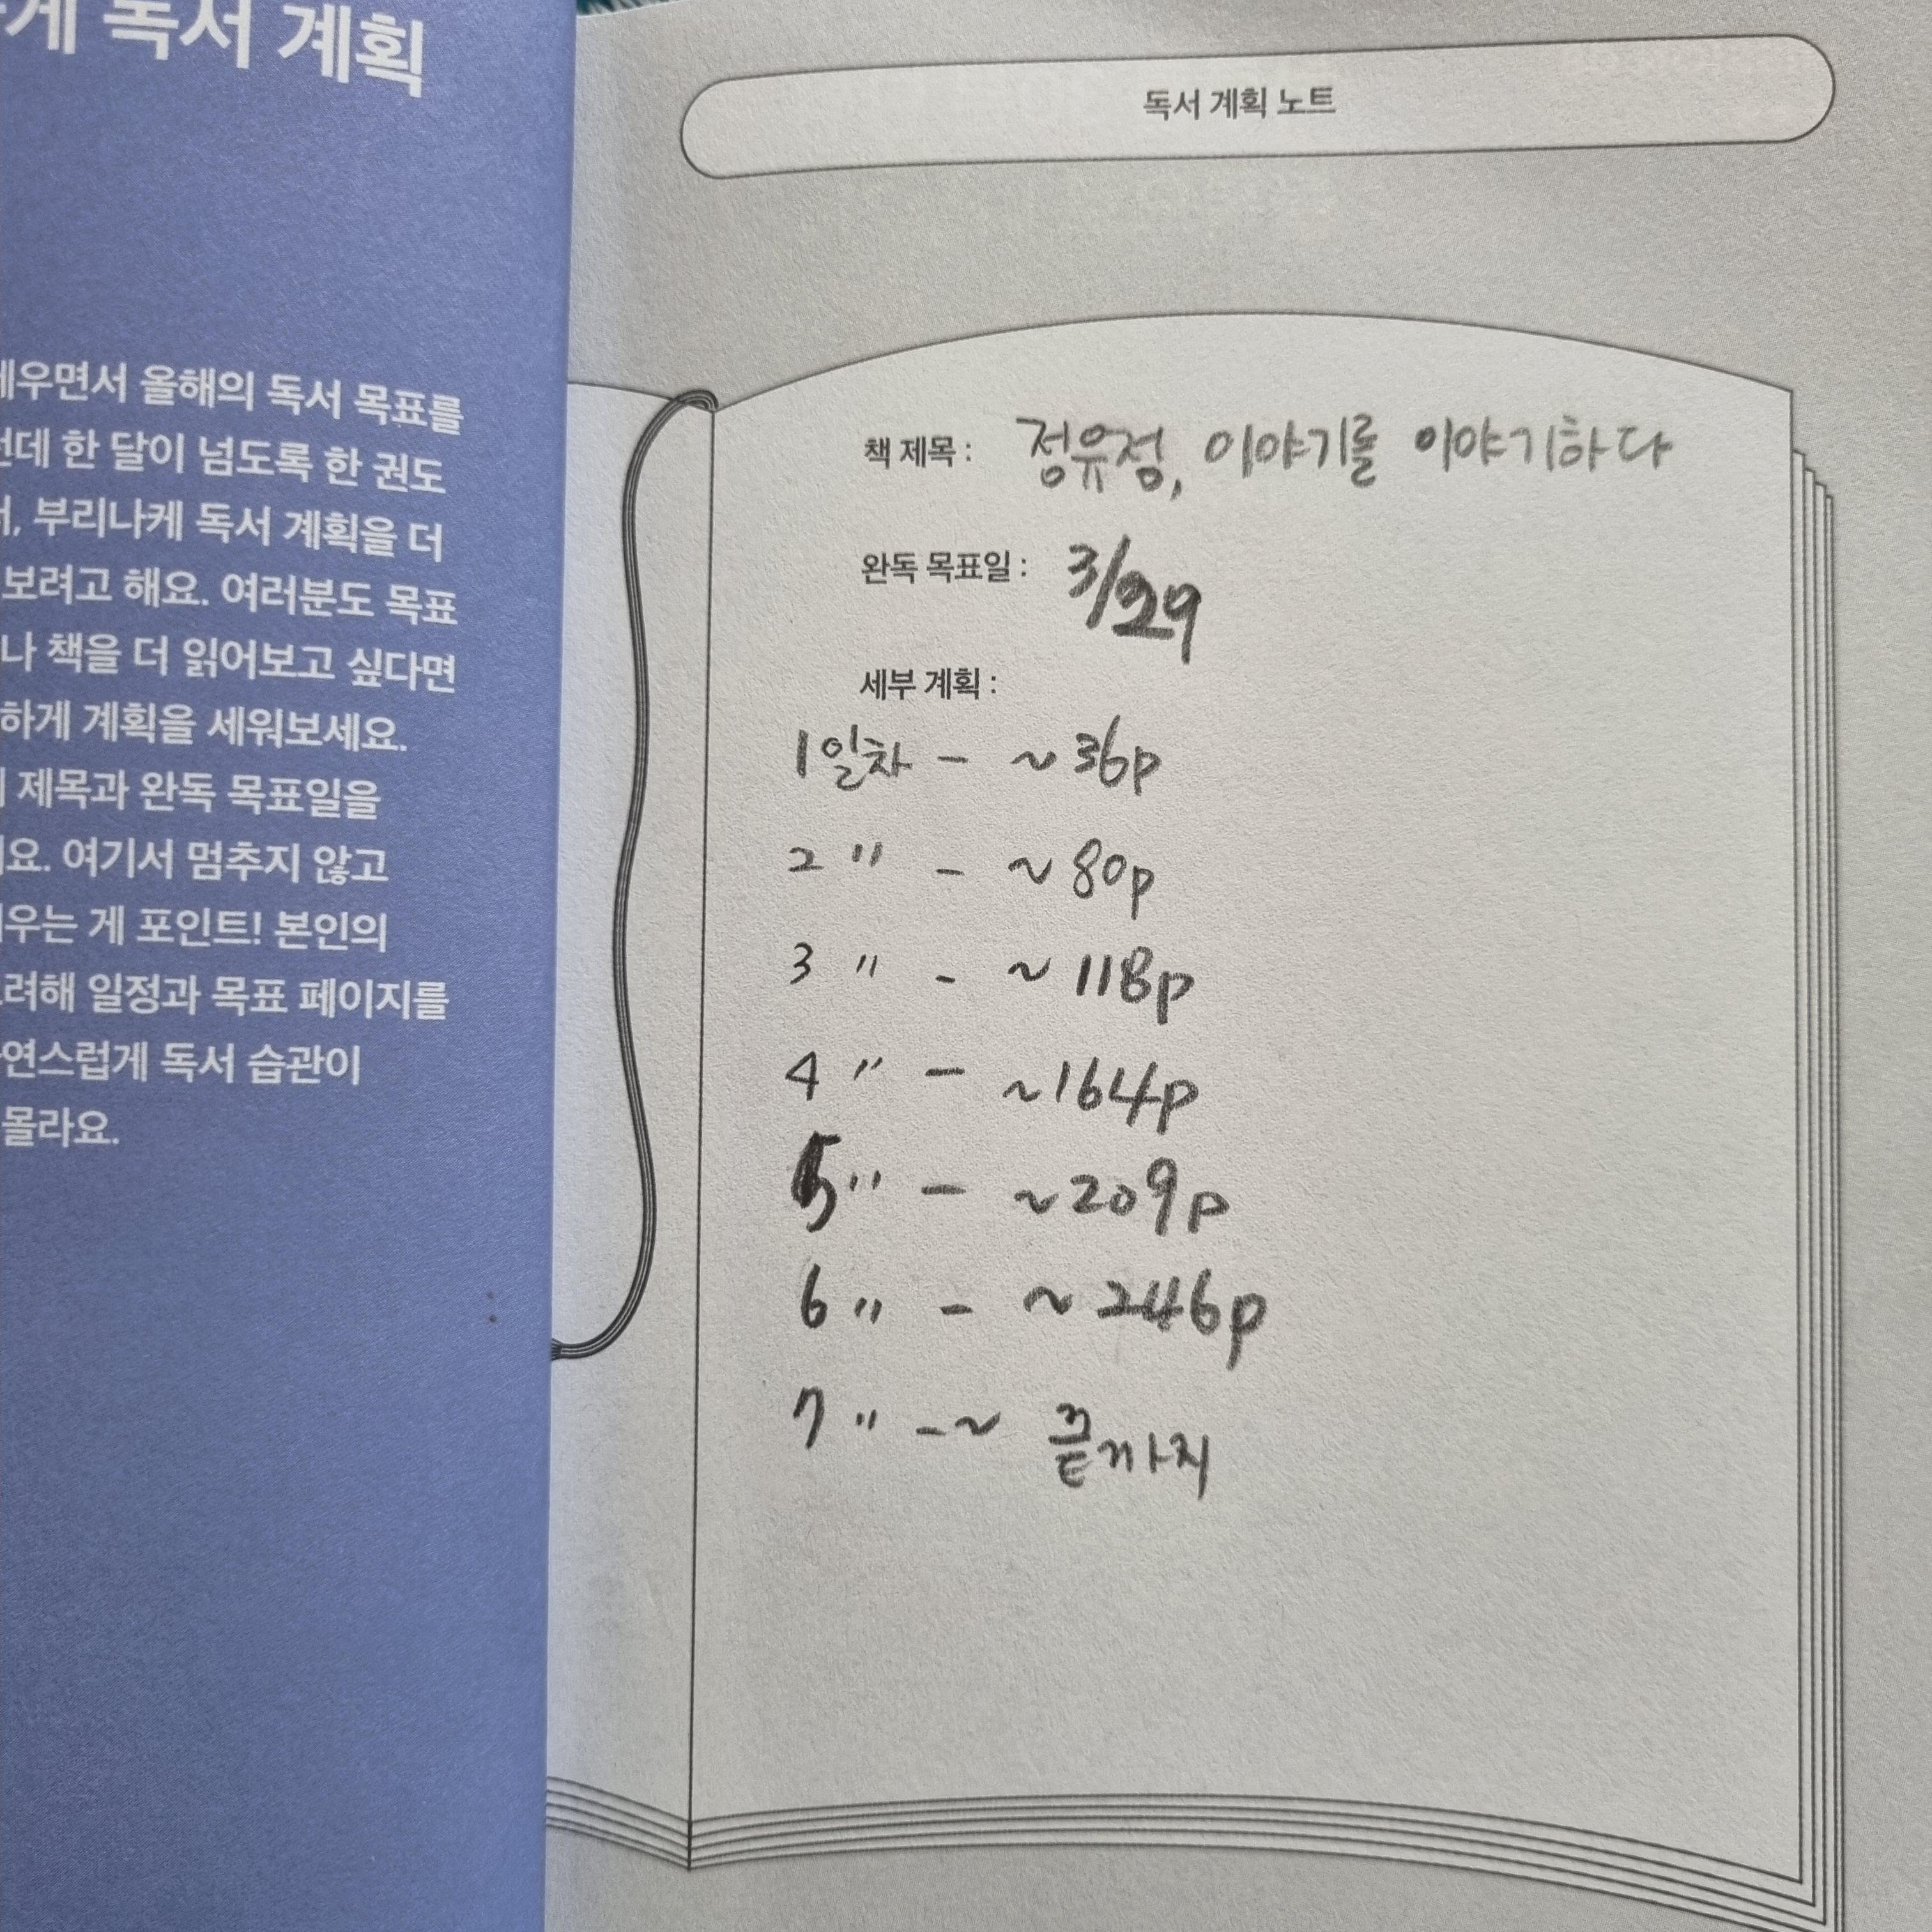 게 독서 계획
세우면서 올해의 독서 목표를
한 달이 넘도록 한 권도
부리나케 독서 계획을 더
보려고 해요. 여러분도 목표
책을 더 읽어보고 싶다면
하게 계획을 세워보세요.
제목과 완독 목표일을
여기서 멈추지 않고
게 포인트! 본인의
일정과 목표 페이지를
독서 습관이
몰라요.
독서 계획 노트
책 제목 : 정유정, 이야기를 이야기하다
완독 목표일 : 3/29
세부 계획 :
1일차 - ~36p
2 〃 - ~80p
3 〃 - ~118p
4 〃 - ~164p
5 〃 - ~209p
6 〃 - ~246p
7 〃 - ~ 끝까지